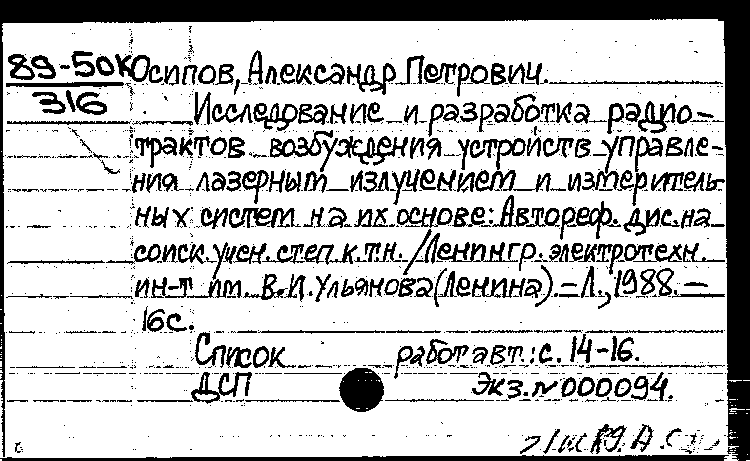 89-50К Осипов, Александр Петрович.
316
Исследование и разработка радио-
трактов возбуждения устройств управле-
ния лазерным излучением и измеритель-
ных систем на их основе: Автореф. дис. на
соиск. учен. степ. к.т.н. /Ленингр. электротехн.
ин-т им. В.И. Ульянова (Ленина). – Л., 1988. –
16 с.
Список работ авт.: с. 14-16.
ДСП Экз. № 000094.